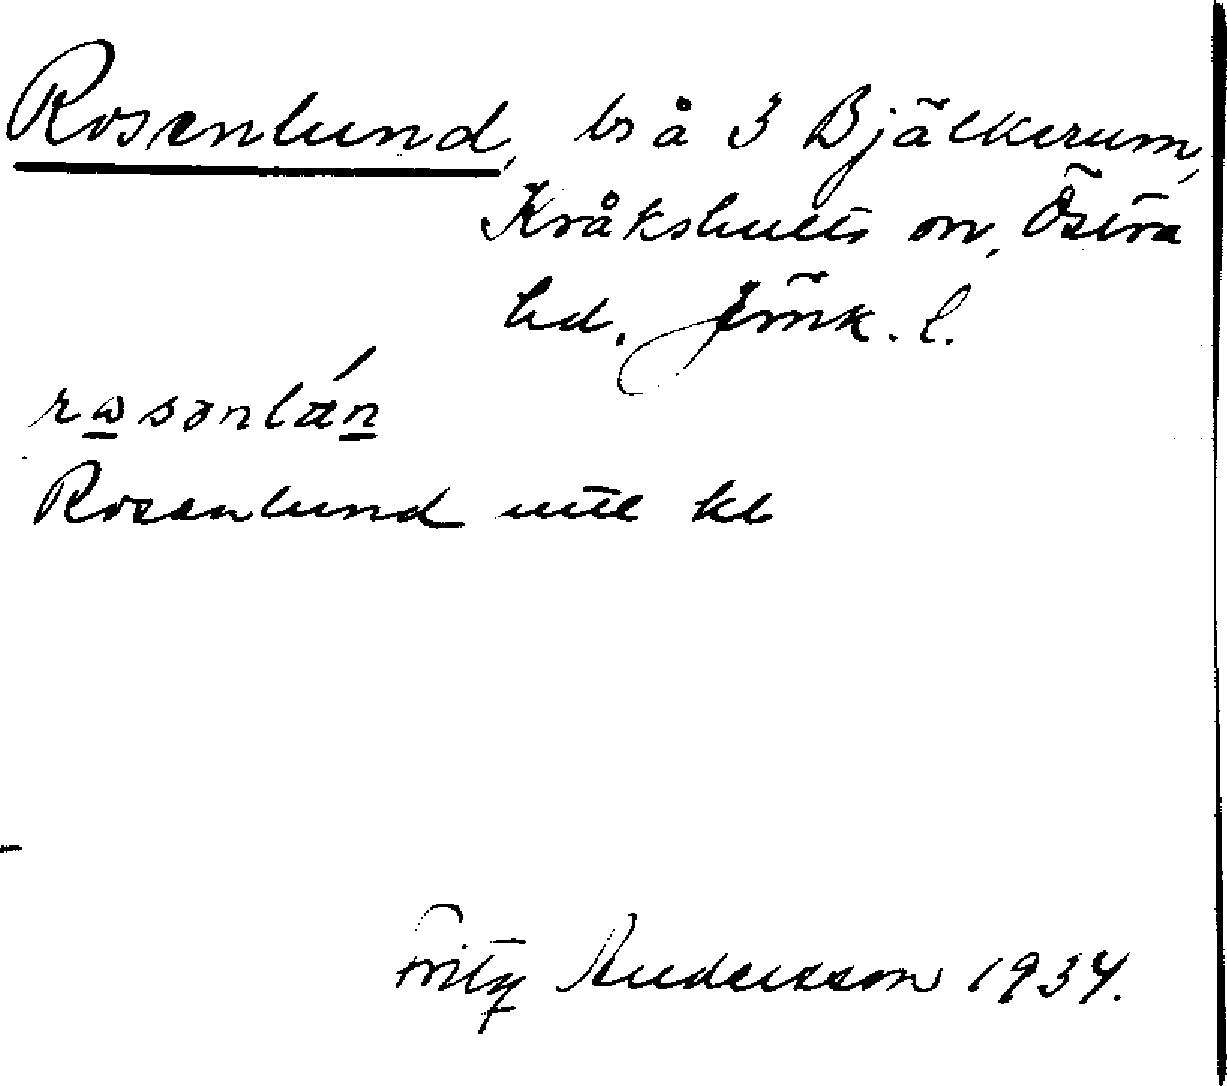 Rosenlund, ls å 3 Bjälkerum,
Kråkshults sn, Östra
hd. Jönk. l.
rωsənlán
Rosenlund kb
Fritz Andersson 1934.